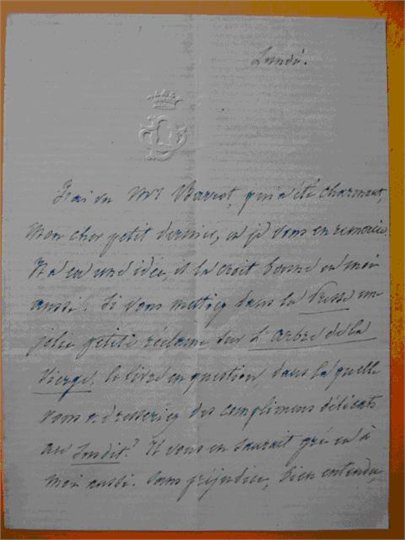 Lundi.
J'ai vu Mr Barrot, qui a été charmant,
Mon cher petit dernier, et je vous en remercie
Il a eu une idée, il la croit bonne et moi
aussi. Si vous mettiez dans la Presse une
jolie petite réclame sur l'arbre de la
Vierge. le livre en question dans laquelle
vous adresseriez des complimens délicats
au
Il vous en saurait gré et à
moi aussi. Sans préjudice, bien entendu,